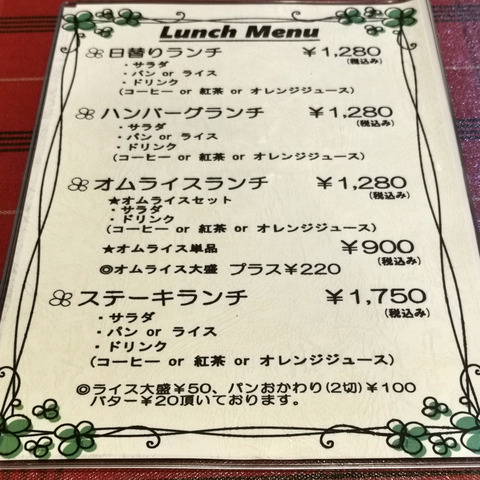 Lunch Menu
日替りランチ ￥1,280
(税込み)
・サラダ
・パン or ライス
・ドリンク
(コーヒー or 紅茶 or オレンジジュース)
ハンバーグランチ ￥1,280
(税込み)
・サラダ
・パン or ライス
・ドリンク
(コーヒー or 紅茶 or オレンジジュース)
オムライスランチ ￥1,280
(税込み)
★オムライスセット
・サラダ
・ドリンク
(コーヒー or 紅茶 or オレンジジュース)
★オムライス単品 ￥900
(税込み)
◎オムライス大盛 プラス￥220
ステーキランチ ￥1,750
(税込み)
・サラダ
・パン or ライス
・ドリンク
(コーヒー or 紅茶 or オレンジジュース)
◎ライス大盛￥50、パンおかわり(2切)￥100
バター￥20頂いております。